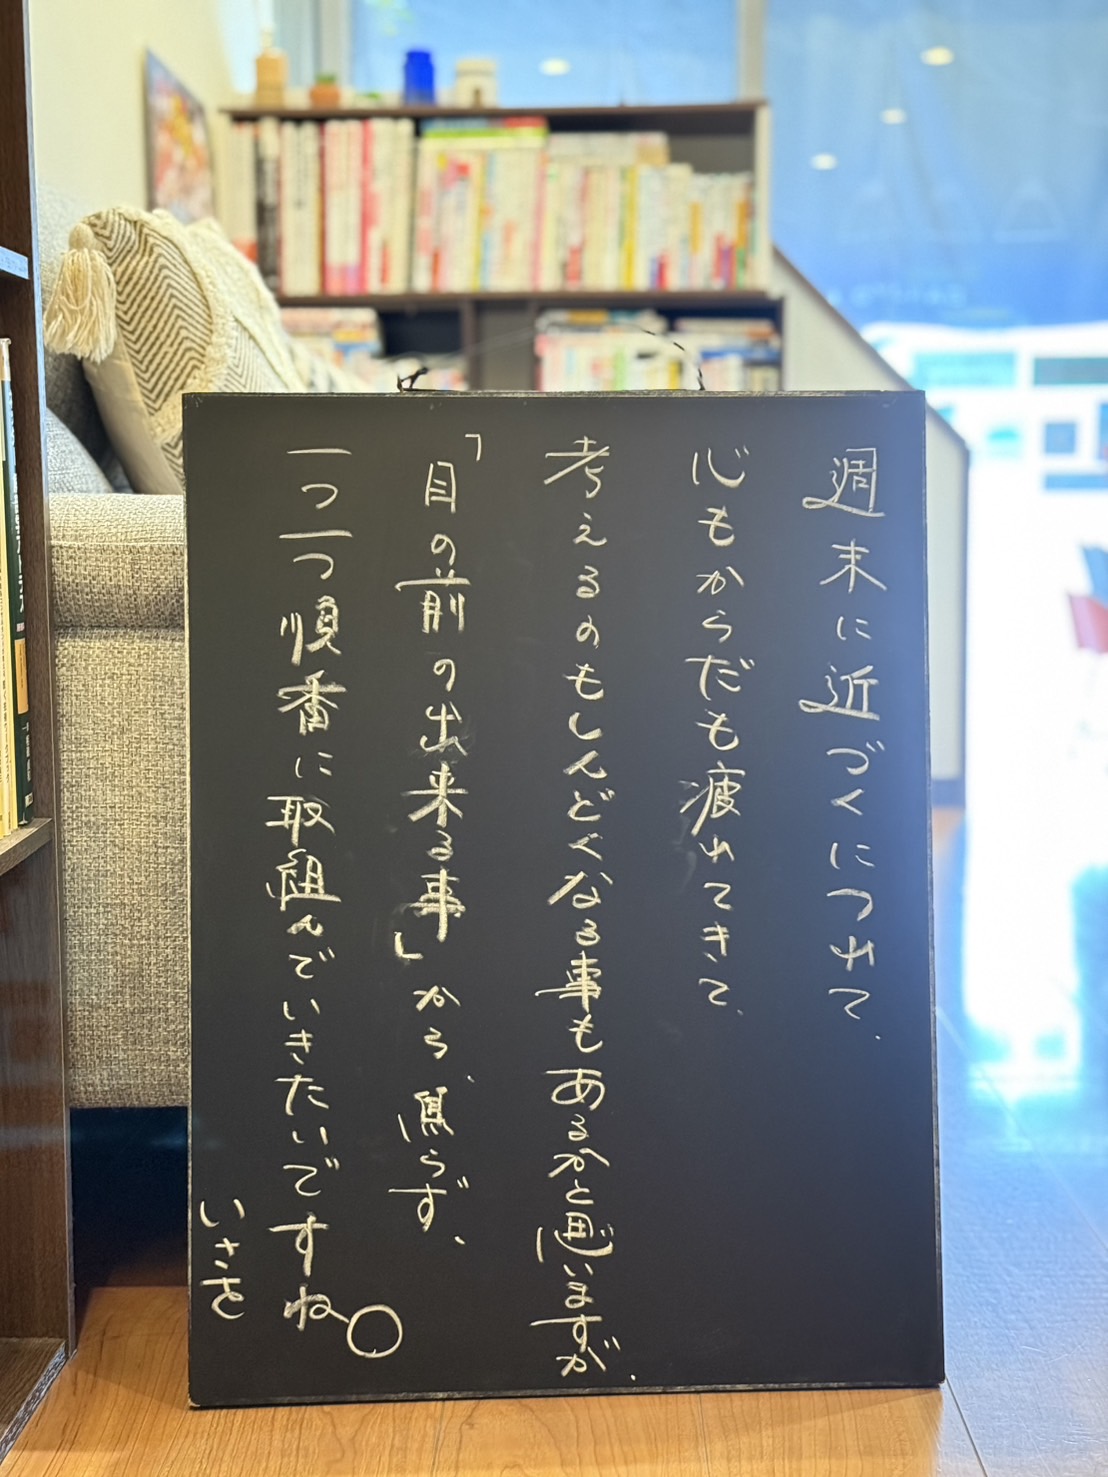 週末に近づくにつれて、
心もからだも疲れてきて、
考えるのもしんどくなる事もあるかと思いますが、
「目の前の出来る事」から、焦らず、
一つ一つ順番に取組んでいきたいですね。
いさを